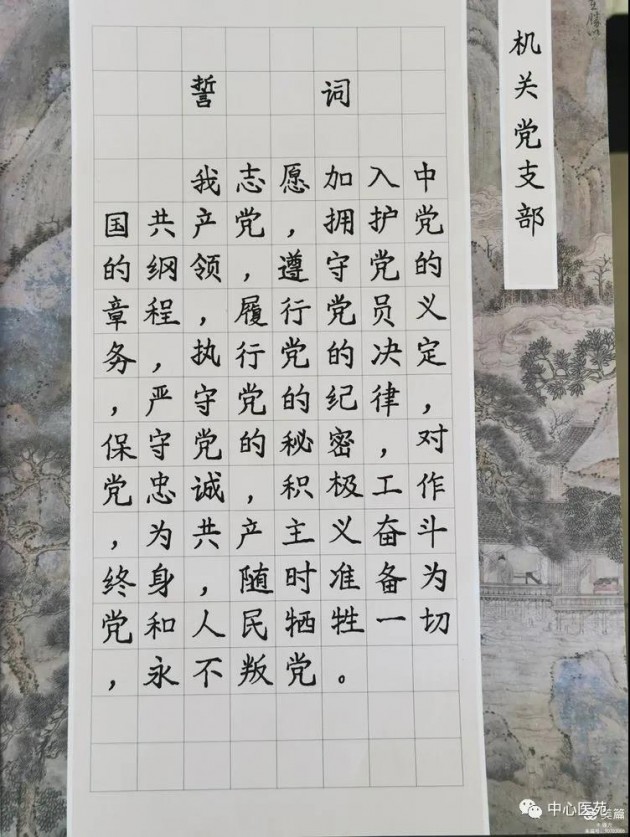 誓词
我志愿加入中
国共产党，拥护党
的纲领，遵守党的
章程，履行党员义
务，执行党的决定
，严守党的纪律，
保守党的秘密，对
党忠诚，积极工作
，为共产主义奋斗
终身，随时准备为
党和人民牺牲一切
，永不叛党。
机关党支部
中心医苑
美篇